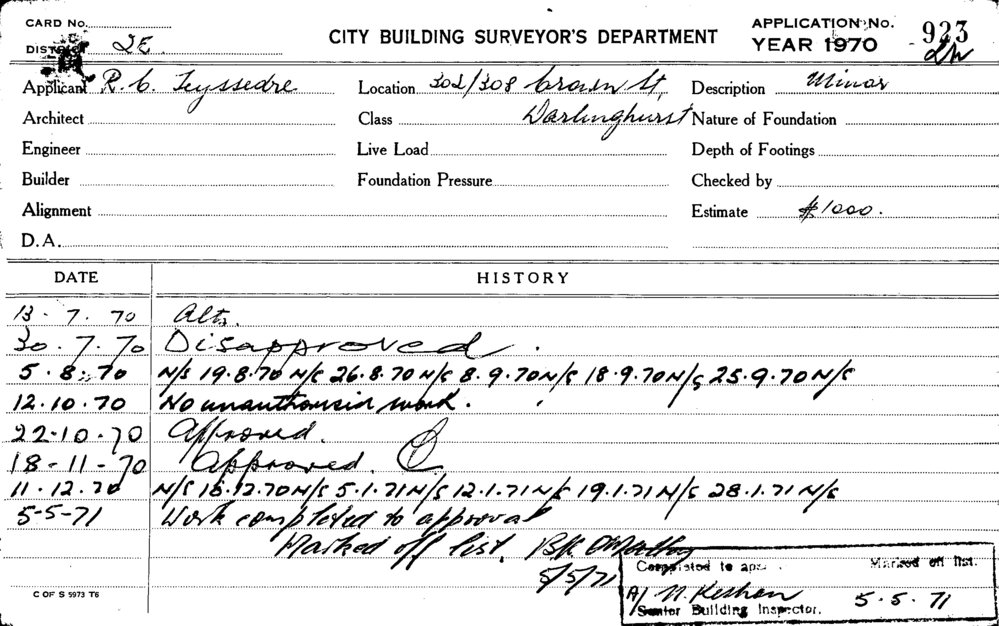 CARD No.
CITY BUILDING SURVEYOR'S DEPARTMENT
APPLICATION No. 923
DISTRICT 2E
YEAR 1970
Applicant R. C. Teyssedre
Location 302/308 Crown St,
Description Minor
Architect
Class Darlinghurst
Nature of Foundation
Engineer
Live Load
Depth of Footings
Builder
Foundation Pressure
Checked by
Alignment
Estimate $1000.
D.A.
DATE HISTORY
13 . 7 . 70 Alts.
30 . 7 . 70 Disapproved.
5 . 8 . 70 N/S 19.8.70 N/S 26.8.70 N/S 8.9.70 N/S 18.9.70 N/S 25.9.70 N/S
12.10.70 No unauthorisid work.
22-10-70 Approved.
18-11-70 Approved.
11.12.70 N/S 18.12.70 N/S 5.1.71 N/S 12.1.71 N/S 19.1.71 N/S 28.1.71 N/S
5-5-71 Work completed to approval
Marked off list.
5/5/71
Completed to Marked off list.
A/ N. Keshan 5.5.71
Senior Building Inspector.
C OF S 5973 T6